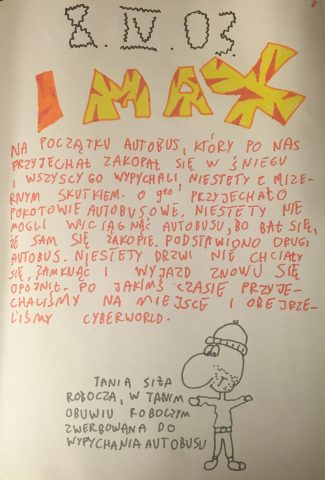 8.IV.03.
IMAX
NA POCZĄTKU AUTOBUS, KTÓRY PO NAS
PRZYJECHAŁ ZAKOPAŁ SIĘ W ŚNIEGU
I WSZYSCY GO WYPYCHALI NIESTETY Z MIZE-
RNYM SKUTKIEM. O 9⁰⁰ PRZYJECHAŁO
POKOTOWIE AUTOBUSOWE. NIESTETY NIE
MOGLI WYCIĄGNĄĆ AUTOBUSU, BO BAŁ SIĘ,
ŻE SAM SIĘ ZAKOPIE. PODSTAWIONO DRUGI
AUTOBUS. NIESTETY DRZWI NIE CHCIAŁY
SIĘ ZAMKNĄĆ I WYJAZD ZNOWU SIĘ
OPÓŹNIŁ. PO JAKIMŚ CZASIE PRZYJE-
CHALIŚMY NA MIEJSCE I OBEJRZE-
LIŚMY CYBERWORLD.
TANIA SIŁA
ROBOCZA, W TANIM
OBUWIU ROBOCZYM
ZWERBOWANA DO
WYPYCHANIA AUTOBUSU